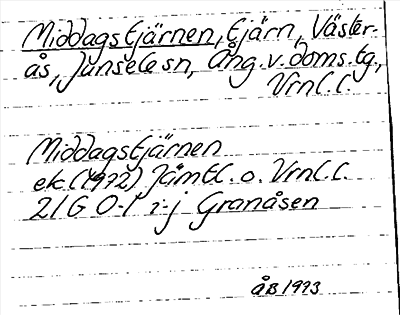 Middagstjärnen, tjärn, Väster-
ås, Junsele sn, Ång. v. doms. tg.,
Vrnl. l.
Middagstjärnen
ek. (1972) Jämtl. o. Vrnl. l.
21G 0-1 i-j Granåsen
ÅB 1973